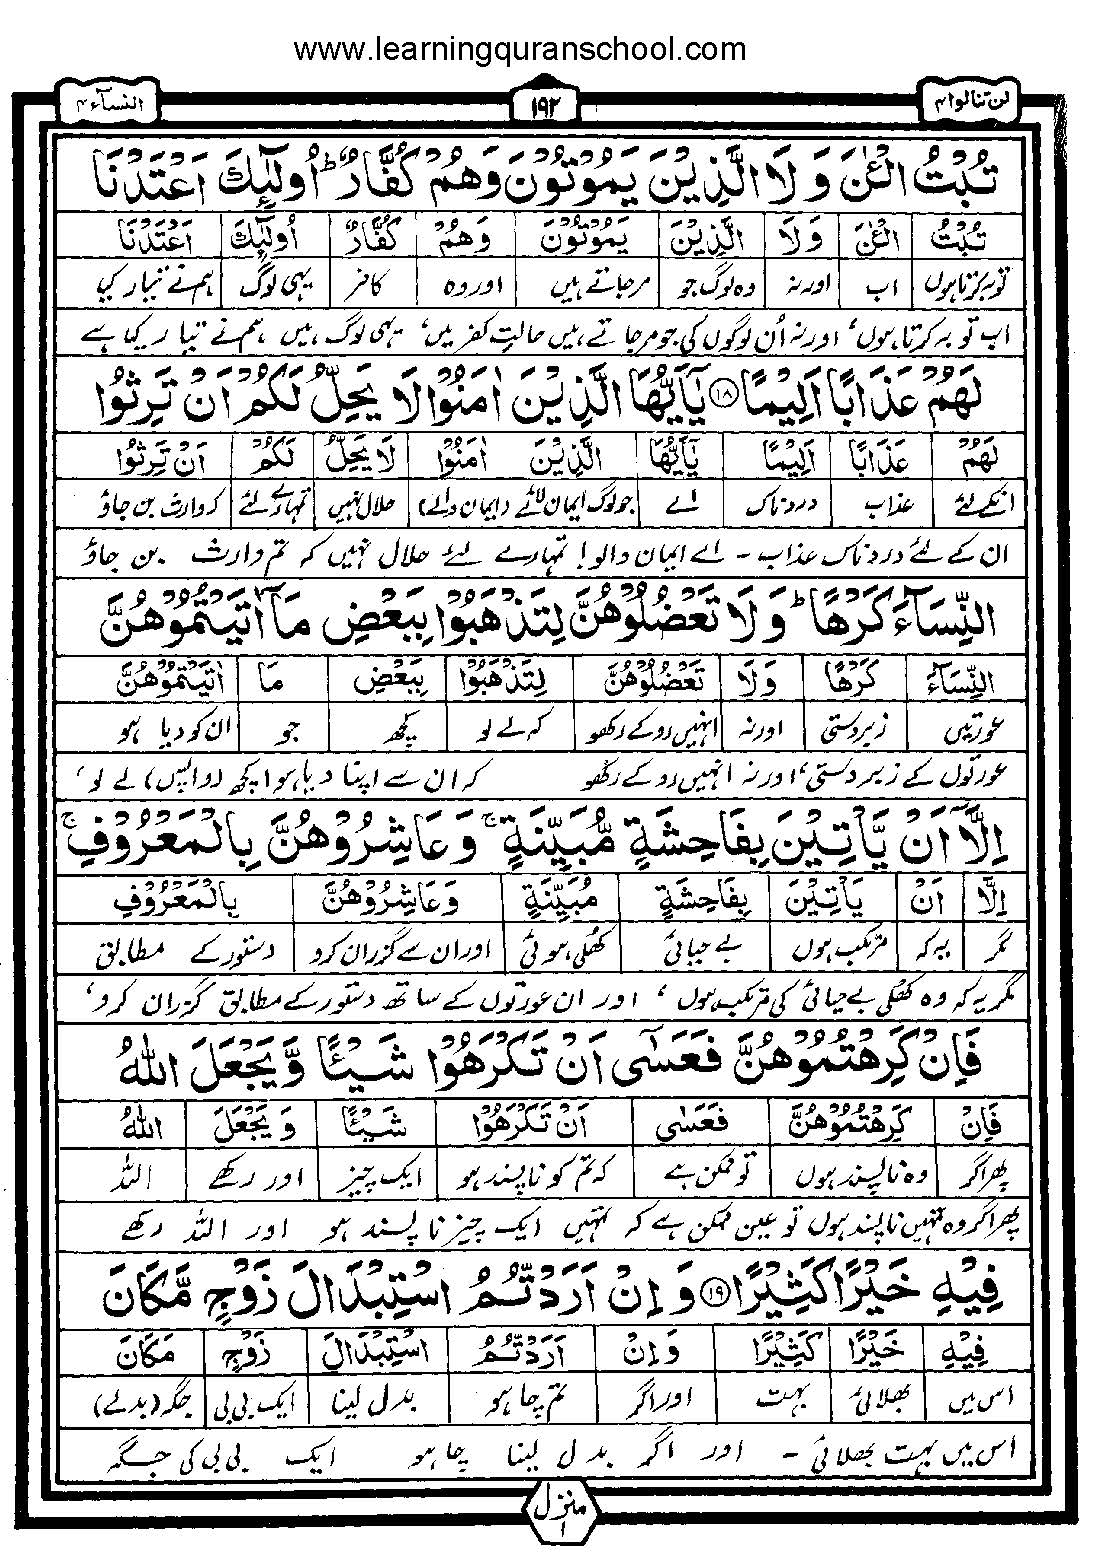 www.learningquranschool.com
لن تنالوا ۴ ۱۹۲ النسآء ۴
تُبْتُ الْـٰٔنَ وَلَا الَّذِيْنَ يَمُوْتُوْنَ وَهُمْ كُفَّارٌ ؕ اُولٰٓئِكَ اَعْتَدْنَا
تُبْتُ الْـٰٔنَ وَلَا الَّذِيْنَ يَمُوْتُوْنَ وَهُمْ كُفَّارٌ اُولٰٓئِكَ اَعْتَدْنَا
توبہ کرتا ہوں اب اور نہ وہ لوگ جو مرجاتے ہیں اور وہ کافر یہی لوگ ہم نے تیار کیا
اب توبہ کرتا ہوں، اور نہ اُن لوگوں کی جو مرجاتے ہیں حالتِ کفر میں، یہی لوگ ہیں ہم نے تیار کیا ہے
لَهُمْ عَذَابًا اَلِيْمًا ۱۸ يٰٓاَيُّهَا الَّذِيْنَ اٰمَنُوْا لَا يَحِلُّ لَكُمْ اَنْ تَرِثُوا
لَهُمْ عَذَابًا اَلِيْمًا يٰٓاَيُّهَا الَّذِيْنَ اٰمَنُوْا لَا يَحِلُّ لَكُمْ اَنْ تَرِثُوا
انکے لئے عذاب دردناک اے جو لوگ ایمان لائے (ایمان والے) حلال نہیں تمہارے لئے کہ وارث بن جاؤ
ان کے لئے دردناک عذاب - اے ایمان والو! تمہارے لئے حلال نہیں کہ تم وارث بن جاؤ
النِّسَآءَ كَرْهًا ؕ وَلَا تَعْضُلُوْهُنَّ لِتَذْهَبُوْا بِبَعْضِ مَآ اٰتَيْتُمُوْهُنَّ
النِّسَآءَ كَرْهًا وَلَا تَعْضُلُوْهُنَّ لِتَذْهَبُوْا بِبَعْضِ مَا اٰتَيْتُمُوْهُنَّ
عورتیں زبردستی اور نہ انہیں روکے رکھو کہ لے لو کچھ جو ان کو دیا ہو
عورتوں کے زبردستی، اور نہ انہیں روکے رکھو کہ ان سے اپنا دیا ہوا کچھ (واپس) لے لو،
اِلَّآ اَنْ يَّاْتِيْنَ بِفَاحِشَةٍ مُّبَيِّنَةٍ ۚ وَعَاشِرُوْهُنَّ بِالْمَعْرُوْفِ ۚ
اِلَّآ اَنْ يَاْتِيْنَ بِفَاحِشَةٍ مُبَيِّنَةٍ وَعَاشِرُوْهُنَّ بِالْمَعْرُوْفِ
مگر یہ کہ مرتکب ہوں بے حیائی کھلی ہوئی اور ان سے گزران کرو دستور کے مطابق
مگر یہ کہ وہ کھلی بے حیائی کی مرتکب ہوں، اور ان عورتوں کے ساتھ دستور کے مطابق گزران کرو،
فَاِنْ كَرِهْتُمُوْهُنَّ فَعَسٰٓى اَنْ تَكْرَهُوْا شَيْـًٔا وَّيَجْعَلَ اللّٰهُ
فَاِنْ كَرِهْتُمُوْهُنَّ فَعَسٰى اَنْ تَكْرَهُوْا شَيْـًٔا وَيَجْعَلَ اللّٰهُ
پھر اگر وہ ناپسند ہوں تو ممکن ہے کہ تم کو ناپسند ہو ایک چیز اور رکھے اللہ
پھر اگر وہ تمہیں ناپسند ہوں تو عین ممکن ہے کہ تمہیں ایک چیز ناپسند ہو اور اللہ رکھے
فِيْهِ خَيْرًا كَثِيْرًا ۱۹ وَاِنْ اَرَدْتُّمُ اسْتِبْدَالَ زَوْجٍ مَّكَانَ
فِيْهِ خَيْرًا كَثِيْرًا وَاِنْ اَرَدْتُّمُ اسْتِبْدَالَ زَوْجٍ مَكَانَ
اس میں بھلائی بہت اور اگر تم چاہو بدل لینا ایک بی بی جگہ (بدلے)
اس میں بہت بھلائی - اور اگر بدل لینا چاہو ایک بی بی کی جگہ
منزل ۱